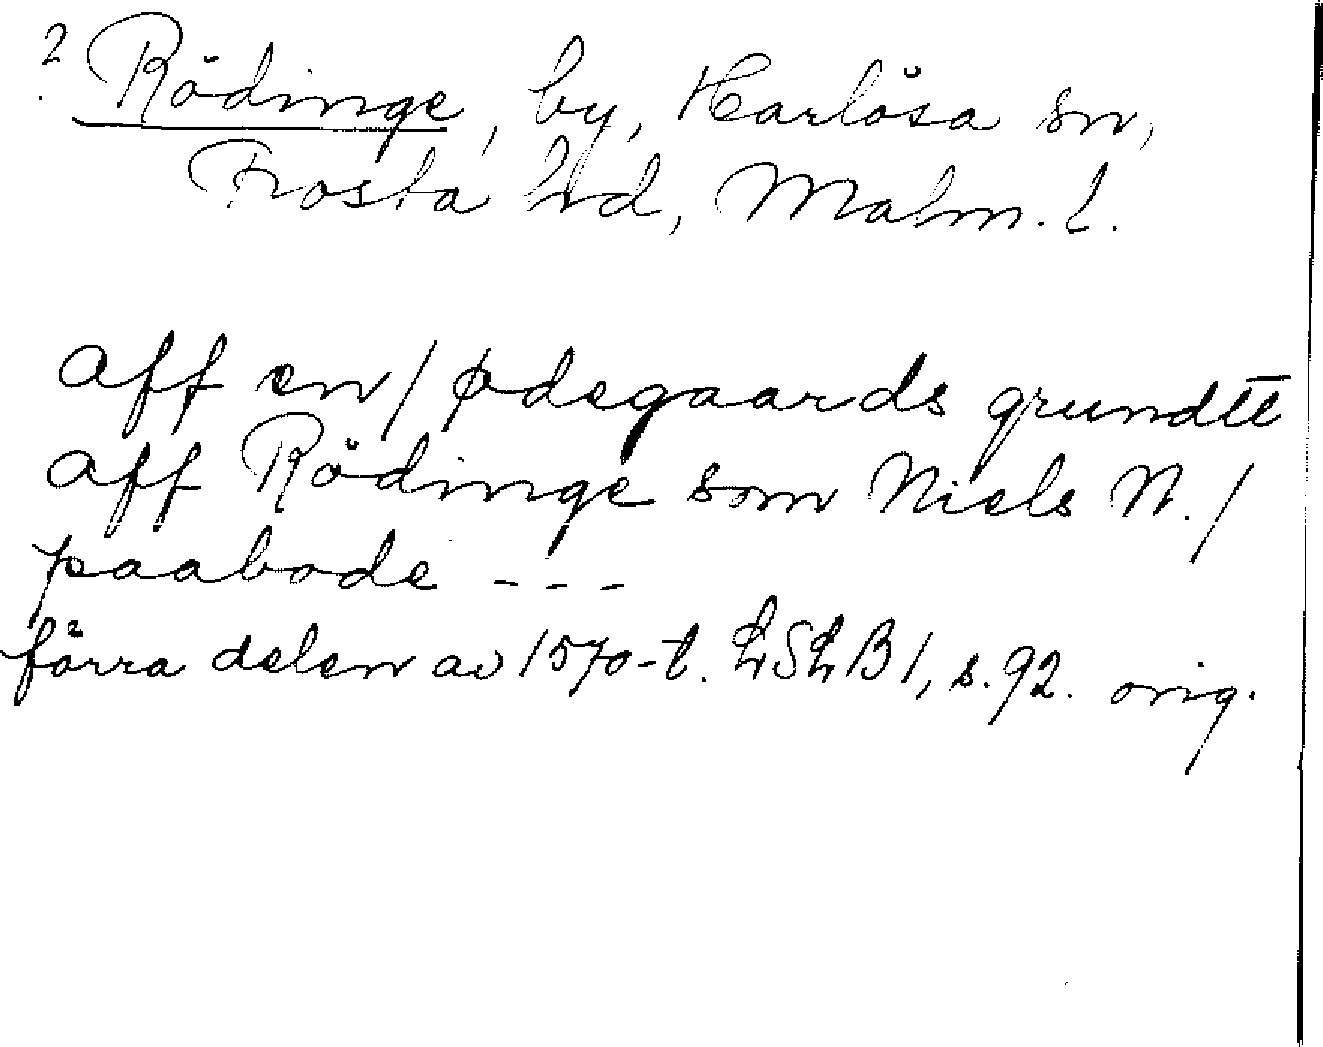 ? Rödinge, by, Harlösa sn,
Frosta hd, Malm. l.
aff en / ødegaards grundtt
aff Rödinge som Niels N. /
paabode - - -
förra delen av 1570-t. LSLB 1, s. 92. orig.